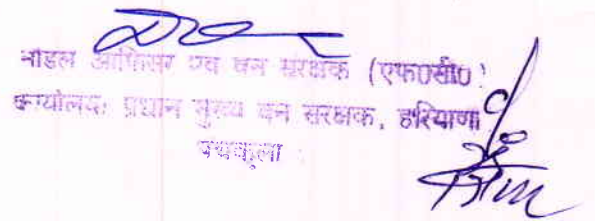 नोडल आफिसर एवं वन संरक्षक (एफ0सी0)
कार्यालय: प्रधान मुख्य वन सरक्षक, हरियाणा
पंचकूला